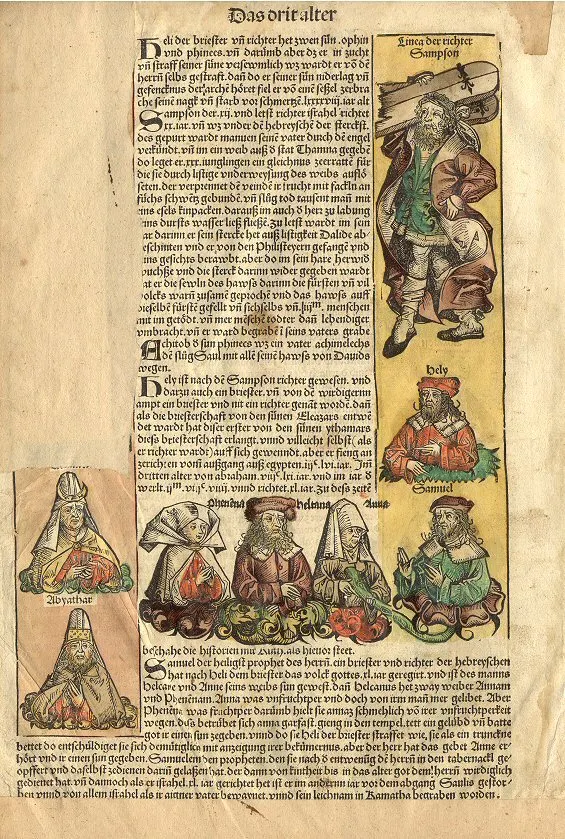 Das drit alter
Heli der briester vñ richter het zwen sün. ophin
vnd phinees. vñ darũmb aber dz er in zucht
vñ straff seiner süne versewmlich wz wardt er võ dẽ
herrñ selbs gestraft. dañ do er seiner sün niderlag vñ
gefencknus der arche höret fiel er võ einẽ seßel zerbra
che seinẽ nagk vñ starb vor schmertzẽ. lxxxviij. iar alt
Sampson der .xij. vnd letst richter istrahel richtet
.xx. iar. vñ wz vnder dẽ hebreyschẽ der sterckst.
des gepurt wardt manuen seinẽ vater durch dẽ engel
verkündt. vñ im ein weib auß d̃ stat Thamna gegebẽ
do leget er .xxx. iunglingen ein gleichnus
die sie durch listige vnderweysung des weibs auflö
seten. der verprennet dẽ veindẽ ir frucht mit facklñ an
füchs schwentz gebundẽ. vñ slüg tod tausent mañ mit
eins esels kinpacken. darauß im auch d̃ herr zu labung
seins dursts wasser ließ fließẽ. Zu letst wardt im sein
har darinn er sein stercke het auß listigkeit Dalide ab-
geschniten vnd er von den Philisteyern gefangẽ vnd
seins gesichts berawbt. aber do im sein hare herwid̃
wuchße vnd die sterck darinn wider gegeben wardt
do er die sewln des hawßs darinn die fürsten vñ vil
volcks warñ zusamẽ geprochẽ vnd das hawss auff
dieselbẽ fürstẽ gefellt vñ sich selbs vñ menschen
mit im getödt. vñ mer meschẽ todter dañ lebendiger
vmbracht. vñ er ward begrabẽ ĩ seins vaters grabe
Achitob d̃ sun phinees wz ein vater achimelechs
den slüg Saul mit allẽ seinẽ hawss von Dauids
wegen.
Hely ist nach dẽ Sampson richter gewesen. vnd
darzu auch ein briester. vñ von dẽ wirdigerm
ampt ein briester vnd nit ein richter genãt wordẽ. dañ
als die briesterschaft von den sünen Eleazars entwe
det wardt hat diser erster von den sünen ythamars
diess briesterschaft erlangt. vnnd villeicht selbst (als
er richter wardt) auff sich gewenndt. aber er fieng an
zerich
dritten alter von abraham. vnd im iar d̃
werlt vnd richtet .xl. iar. Zu dess zeitẽ
beschahe die historien mit Ruth. als hieuor steet.
Samuel der heiligst prophet des herrñ. ein briester vnd richter der hebreyschen
hat nach Heli dem briester das volck gottes .xl. iar geregirt. vnd ist des manns
Helcane vnd Anne seins weibs sun gewest. dañ Helcanus het zway weiber Annam
vnd Phenenam. Anna was vnfruchtper vnd doch von irm mañ mer gelibet. Aber
Phenena was fruchtper darũmb hielt sie annaz schmehlich võ irer vnfruchtperkeit
wegen. dess betrübet sich anna garfast. gieng in den tempel. tett ein gelübd vñ batte
got ir einẽ sun zegeben. vnnd do sie Heli der briester straffet wie, sie als ein trunckne
bettet do entschüldiget sie sich demütiglich mit anzeigung irer bekümernus. aber der herr hat das gebet Anne er-
hört vnd ir einen sun gegeben. Samuelem den propheten. den sie nach d̃ entwenũg dẽ herrñ in den tabernackl ge-
opffert vnd daselbst zedienen darĩn gelaßen hat. der dann von kintheit bis in das alter got dem herrñ wirdiglich
gedienet hat. vñ dannoch als er istrahel .xl. iar gerichtet het ist er im andernn iar vor dem abgang Saulis gestor-
ben vnnd von allem istrahel als ir aigner vater bewaynet. vnnd sein leichnam in Ramatha begraben worden.
Linea der richter
Sampson
Hely
Samuel
Phenena
Helcana
Anna
Abyathar